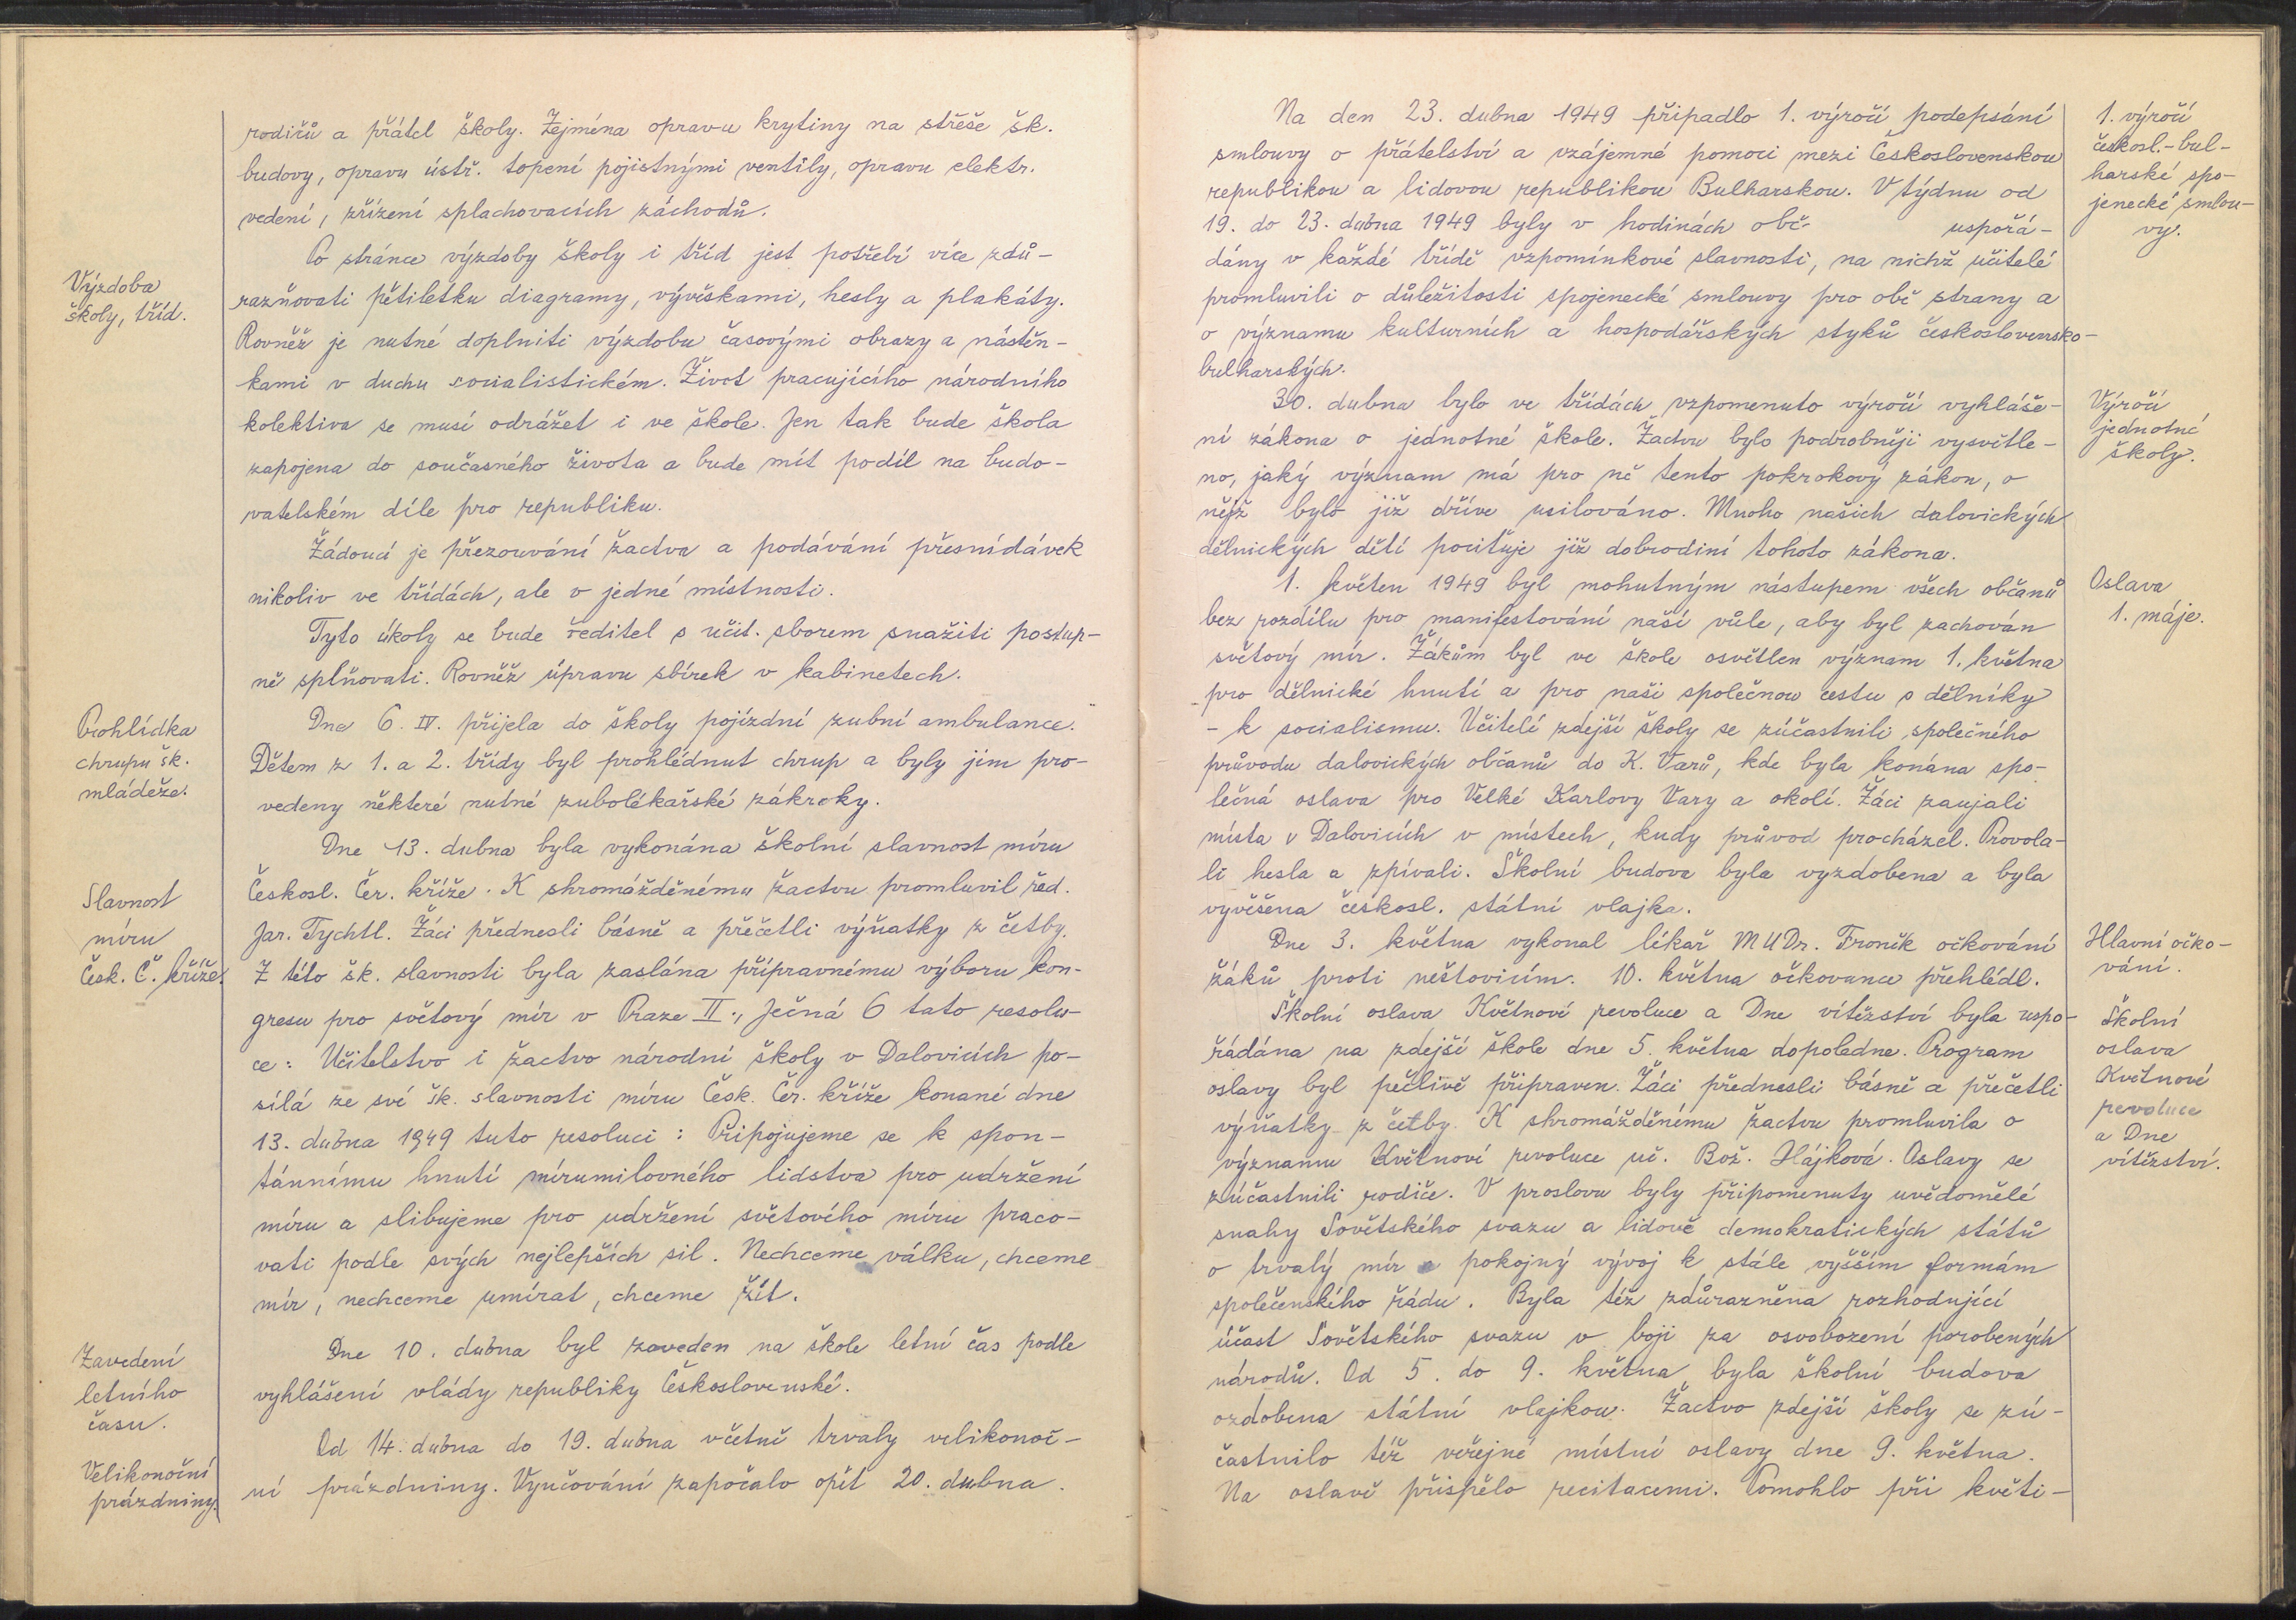 rodičů a přátel školy. Zejména opravu krytiny na střeše šk.
budovy, opravu ústř. topení pojistnými ventily, opravu elektr.
vedení, zřízení splachovacích záchodů.
Výzdoba
školy, tříd.
Po stránce výzdoby školy i tříd jest potřebí více zdů-
razňovati pětiletku diagramy, vývěskami, hesly a plakáty.
Rovněž je nutné doplniti výzdobu časovými obrazy a nástěn-
kami v duchu socialistickém. Život pracujícího národního
kolektiva se musí odrážet i ve škole. Jen tak bude škola
zapojena do současného života a bude mít podíl na budo-
vatelském díle pro republiku.
Žádoucí je přezouvání žactva a podávání přesnídávek
nikoliv ve třídách, ale v jedné místnosti.
Tyto úkoly se bude ředitel s učit. sborem snažiti postup-
ně splňovati. Rovněž úpravu sbírek v kabinetech.
Prohlídka
chrupu šk.
mládeže.
Dne 6. IV. přijela do školy pojízdní zubní ambulance.
Dětem z 1. a 2. třídy byl prohlédnut chrup a byly jim pro-
vedeny některé nutné zubolékařské zákroky.
Slavnost
míru
Česk. Č. kříže.
Dne 13. dubna byla vykonána školní slavnost míru
Českosl. Čer. kříže. K shromážděnému žactvu promluvil řed.
Jar. Tychtl. Žáci přednesli básně a přečetli výňatky z četby.
Z této šk. slavnosti byla zaslána přípravnému výboru kon-
gresu pro světový mír v Praze II., Ječná 6 tato resolu-
ce: Učitelstvo i žactvo národní školy v Dalovicích po-
sílá ze své šk. slavnosti míru Česk. Čer. kříže konané dne
13. dubna 1949 tuto resoluci: Připojujeme se k spon-
tánnímu hnutí mírumilovného lidstva pro udržení
míru a slibujeme pro udržení světového míru praco-
vati podle svých nejlepších sil. Nechceme válku, chceme
mír, nechceme umírat, chceme žít.
Zavedení
letního
času.
Dne 10. dubna byl zaveden na škole letní čas podle
vyhlášení vlády republiky Československé.
Velikonoční
prázdniny.
Od 14. dubna do 19. dubna včetně trvaly velikonoč-
ní prázdniny. Vyučování započalo opět 20. dubna.
1. výročí
českosl.-bul-
harské spo-
jenecké smlou-
vy.
Na den 23. dubna 1949 připadlo 1. výročí podepsání
smlouvy o přátelství a vzájemné pomoci mezi Československou
republikou a lidovou republikou Bulharskou. V týdnu od
19. do 23. dubna 1949 byly v hodinách obč. uspořá-
dány v každé třídě vzpomínkové slavnosti, na nichž učitelé
promluvili o důležitosti spojenecké smlouvy pro obě strany a
o významu kulturních a hospodářských styků československo-
bulharských.
Výročí
jednotné
školy.
30. dubna bylo ve třídách vzpomenuto výročí vyhláše-
ní zákona o jednotné škole. Žactvu bylo podrobněji vysvětle-
no, jaký význam má pro ně tento pokrokový zákon, o
nějž bylo již dříve usilováno. Mnoho našich dalovických
dělnických dětí pociťuje již dobrodiní tohoto zákona.
Oslava
1. máje.
1. květen 1949 byl mohutným nástupem všech občanů
bez rozdílu pro manifestování naší vůle, aby byl zachován
světový mír. Žákům byl ve škole osvětlen význam 1. května
pro dělnické hnutí a pro naši společnou cestu s dělníky
- k socialismu. Učitelé zdejší školy se zúčastnili společného
průvodu dalovických občanů do K. Varů, kde byla konána spo-
lečná oslava pro Velké Karlovy Vary a okolí. Žáci zaujali
místa v Dalovicích v místech, kudy průvod procházel. Provola-
li hesla a zpívali. Školní budova byla vyzdobena a byla
vyvěšena českosl. státní vlajka.
Hlavní očko-
vání.
Dne 3. května vykonal lékař MUDr. Froněk očkování
žáků proti neštovicím. 10. května očkovance přehlédl.
Školní
oslava
Květnové
revoluce
a Dne
vítězství.
Školní oslava Květnové revoluce a Dne vítězství byla uspo-
řádána na zdejší škole dne 5. května dopoledne. Program
oslavy byl pečlivě připraven. Žáci přednesli básně a přečetli
výňatky z četby. K shromážděnému žactvu promluvila o
významu Květnové revoluce uč. Bož. Hájková. Oslavy se
zúčastnili rodiče. V proslovu byly připomenuty uvědomělé
snahy Sovětského svazu a lidově demokratických států
o trvalý mír a pokojný vývoj k stále vyšším formám
společenského řádu. Byla též zdůrazněna rozhodující
účast Sovětského svazu v boji za osvobození porobených
národů. Od 5. do 9. května byla školní budova
ozdobena státní vlajkou. Žactvo zdejší školy se zú-
častnilo též veřejné místní oslavy dne 9. května.
Na oslavě přispělo recitacemi. Pomohlo při květi-